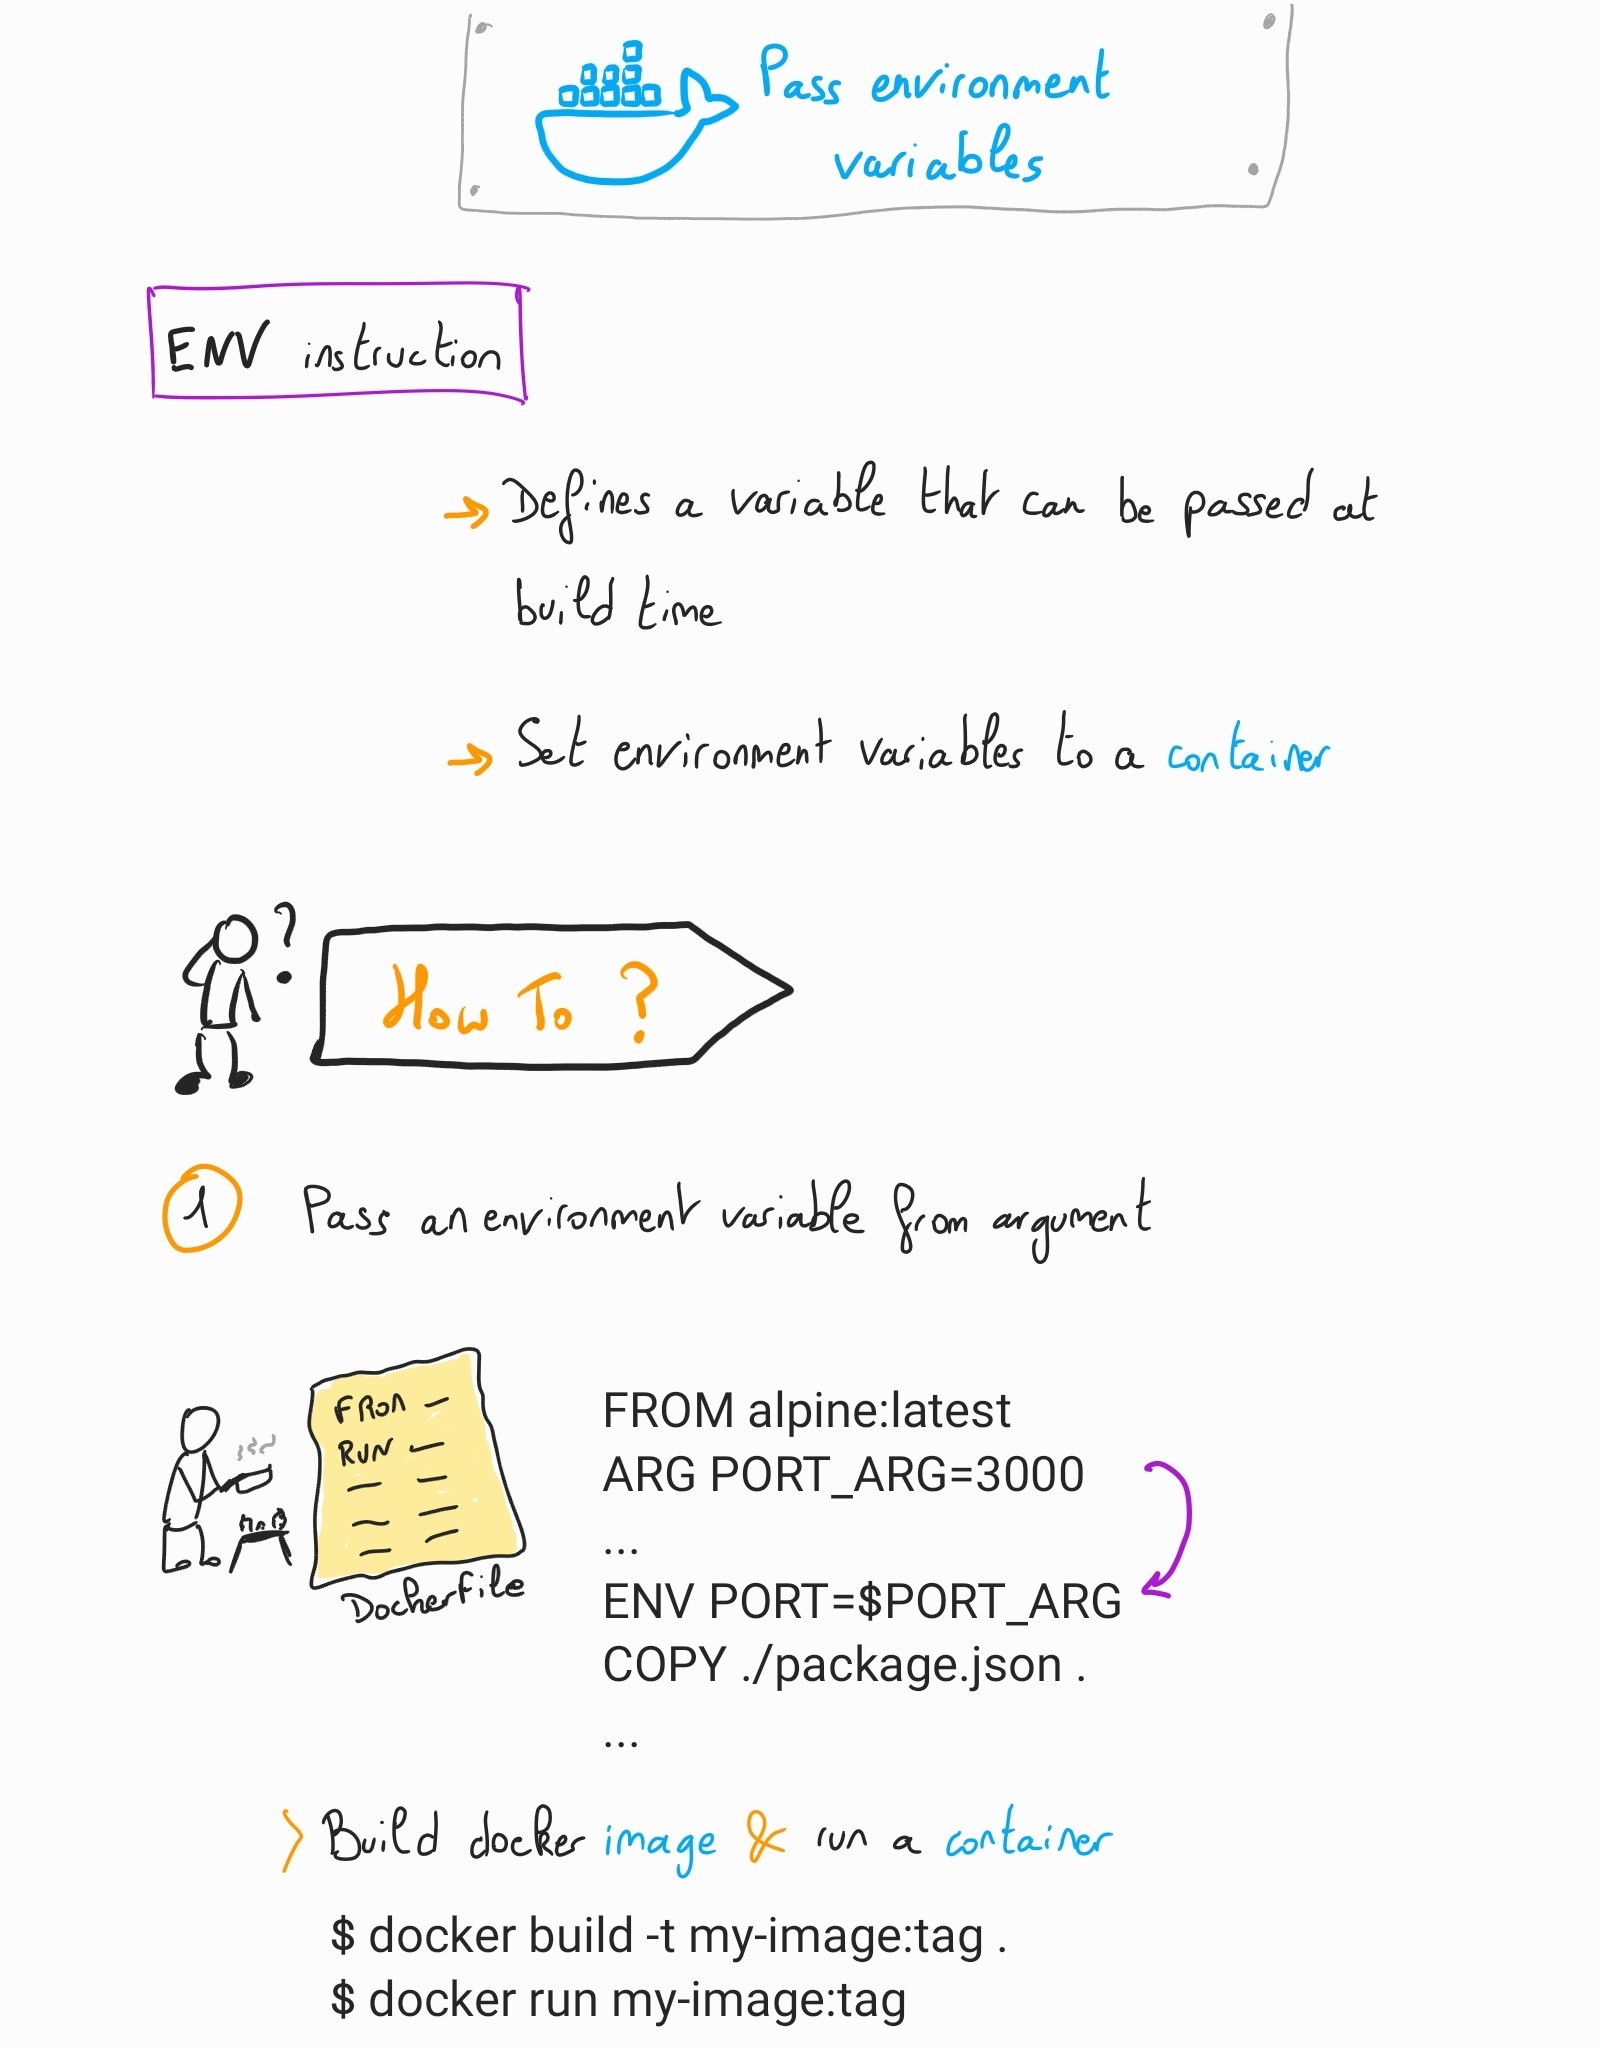 Pass environment
variables
ENV instruction
→ Defines a variable that can be passed at
build time
→ Set environment variables to a container
?
How To ?
1 Pass an environment variable from argument
FROM
RUN
Dockerfile
FROM alpine:latest
ARG PORT_ARG=3000
...
ENV PORT=$PORT_ARG
COPY ./package.json .
...
> Build docker image & run a container
$ docker build -t my-image:tag .
$ docker run my-image:tag